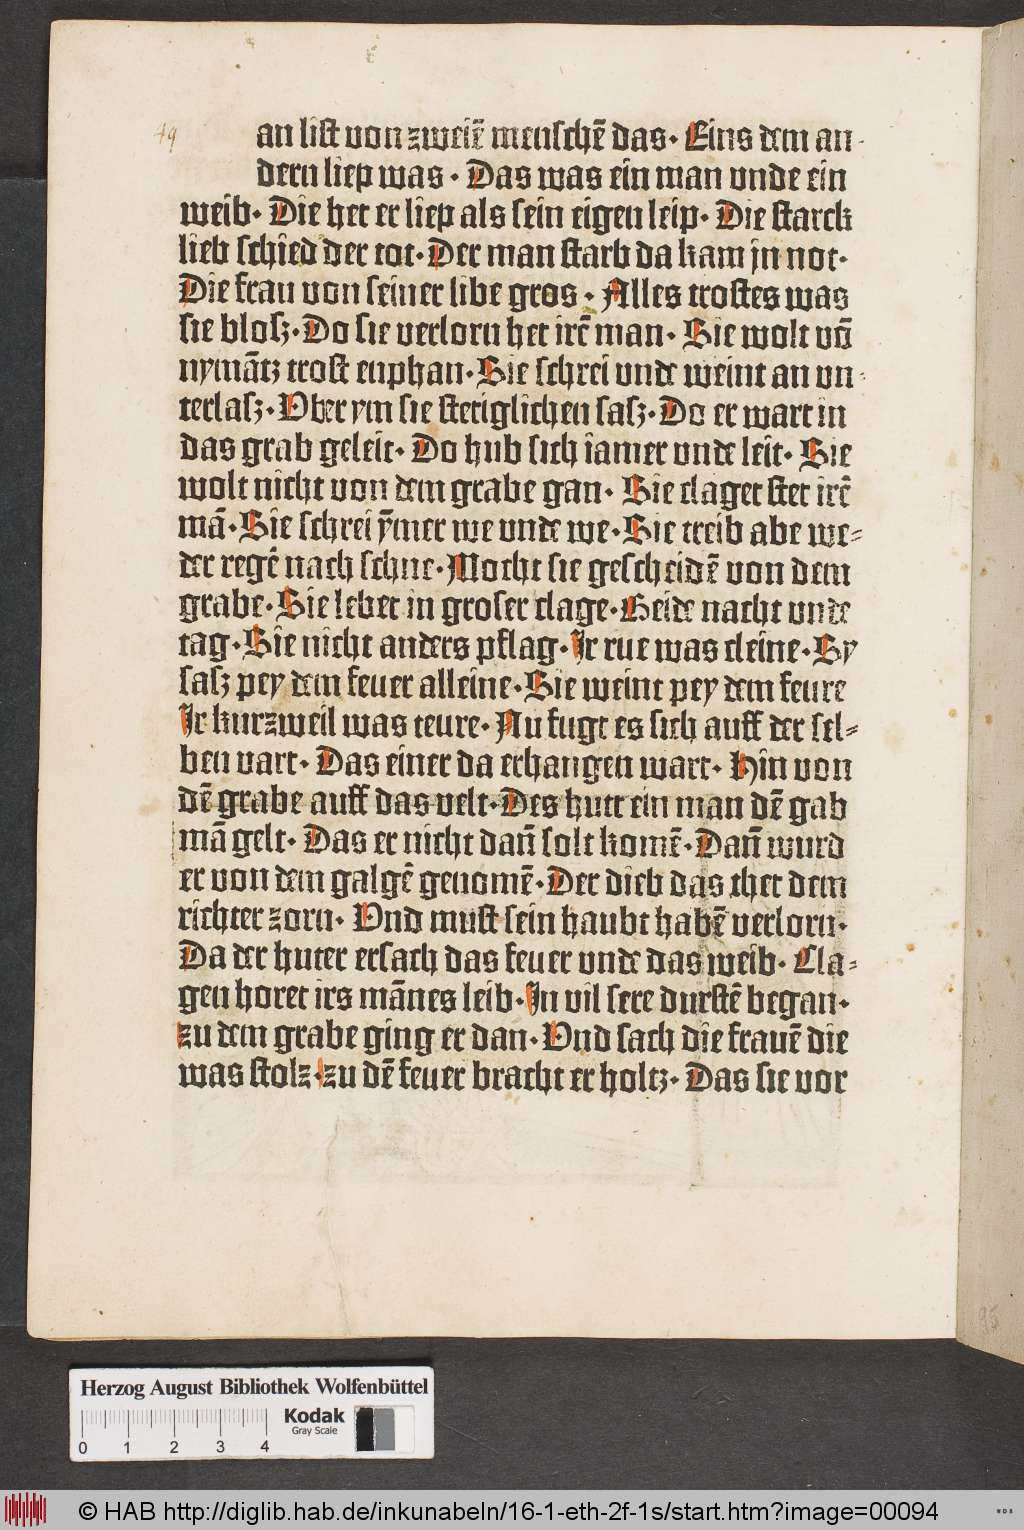 49
an list von zweiē menschē das · Eins dem an
dern liep was · Das was ein man vnde ein
weib · Die het er liep als sein eigen leip · Die starck
lieb schied der tot · Der man starb da kam jn not ·
Die frau von seiner libe gros · Alles trostes was
sie blosz · Do sie verlorn het irē man · Sie wolt vō
nymātz trost enphan · Sie schrei vnde weint an vn
terlasz · Vber ym sie stetiglichen sasz · Do er wart in
das grab geleit · Do hub sich iamer vnde leit · Sie
wolt nicht von dem grabe gan · Sie claget stet irē
mā · Sie schrei ȳmer we vnde we · Sie treib abe we=
der regē nach schne · Mocht sie gescheidē von dem
grabe · Sie lebet in groser clage · Beide nacht vnde
tag · Sie nicht anders pflag · Ir rue was cleine · Sy
sasz pey dem feuer alleine · Sie weint pey dem feure
Ir kurzweil was teure · Nu fugt es sich auff der sel=
ben vart · Das einer da erhangen wart · Hin von
dē grabe auff das velt · Des hutt ein man dē gab
mā gelt · Das er nicht dañ solt komē · Dañ wurd
er von dem galgē genomē · Der dieb das thet dem
richter zorn · Vnd must sein haubt habē verlorn ·
Da der huter ersach das feuer vnde das weib · Cla=
gen horet irs mānes leib · In vil sere durstē began ·
zu dem grabe ging er dan · Vnd sach die frauē die
was stolz · zu dē feuer bracht er holtz · Das sie vor
95
Herzog August Bibliothek Wolfenbüttel
Kodak
Gray Scale
0 1 2 3 4
© HAB http://diglib.hab.de/inkunabeln/16-1-eth-2f-1s/start.htm?image=00094